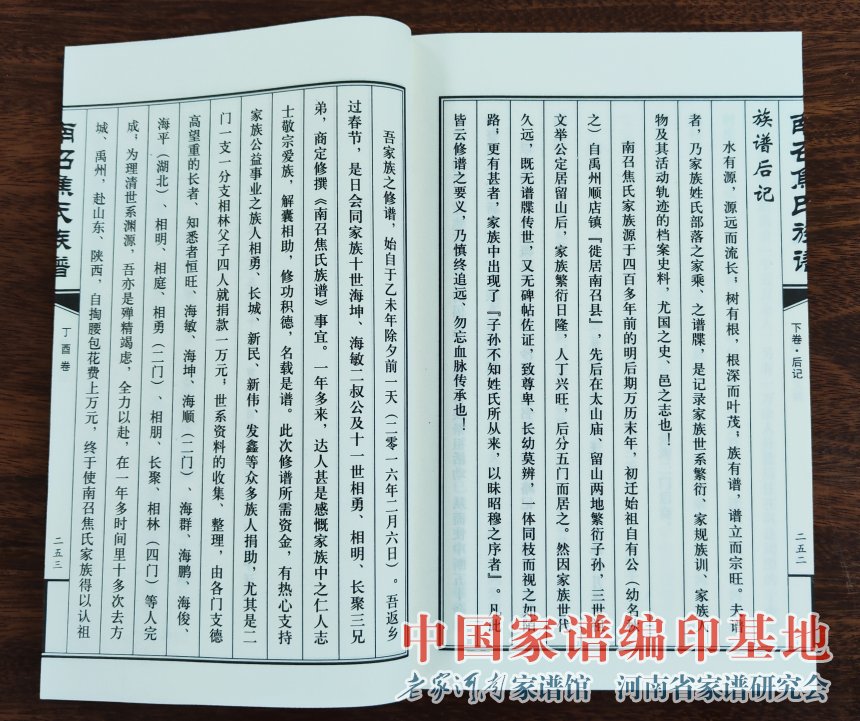 南召焦氏族谱
下卷·后记
二五二
族谱后记
水有源，源远而流长；树有根，根深而叶茂；族有谱，谱立而宗旺。夫谱
者，乃家族姓氏部落之家乘、之谱牒，是记录家族世系繁衍、家规族训、家族人
物及其活动轨迹的档案史料，尤国之史、邑之志也！
南召焦氏家族源于四百多年前的明后期万历末年，初迁始祖自有公（幼名公
之）自禹州顺店镇『徙居南召县』，先后在太山庙、留山两地繁衍子孙，三世
文举公定居留山后，家族繁衍日隆，人丁兴旺，后分五门而居之。然因家族世代
久远，既无谱牒传世，又无碑帖佐证，致尊卑、长幼莫辨，一体同枝而视之如
路，更有甚者，家族中出现了『子孙不知姓氏所从来，以昧昭穆之序者』。凡此
皆云修谱之要义，乃慎终追远、勿忘血脉传承也！
吾家族之修谱，始自于乙未年除夕前一天（二零一六年二月六日）。吾返乡
过春节，是日会同家族十世海坤、海敏二叔公及十一世相勇、相明、长聚三兄
弟，商定修撰《南召焦氏族谱》事宜。一年多来，达人甚是感慨家族中之仁人志
士敬宗爱族，解囊相助，修功积德，名载是谱。此次修谱所需资金，有热心支持
家族公益事业之族人相勇、长城、新民、新伟、发鑫等众多族人捐助，尤其是二
门一支一分支相林父子四人就捐款一万元；世系资料的收集、整理，由各门支德
高望重的长者、知悉者恒旺、海敏、海坤、海顺（二门）、海群、海鹏、海俊、
海平（湖北）、相明、相庭、相勇（二门）、相朋、长聚、相林（四门）等人完
成；为理清世系渊源，吾亦是殚精竭虑，全力以赴，在一年多时间里十多次去方
城、禹州，赴山东、陕西，自掏腰包花费上万元，终于使南召焦氏家族得以认祖
南召焦氏族谱
丁酉卷
二五三
中国家谱编印基地
老家河南家谱馆 河南省家谱研究会